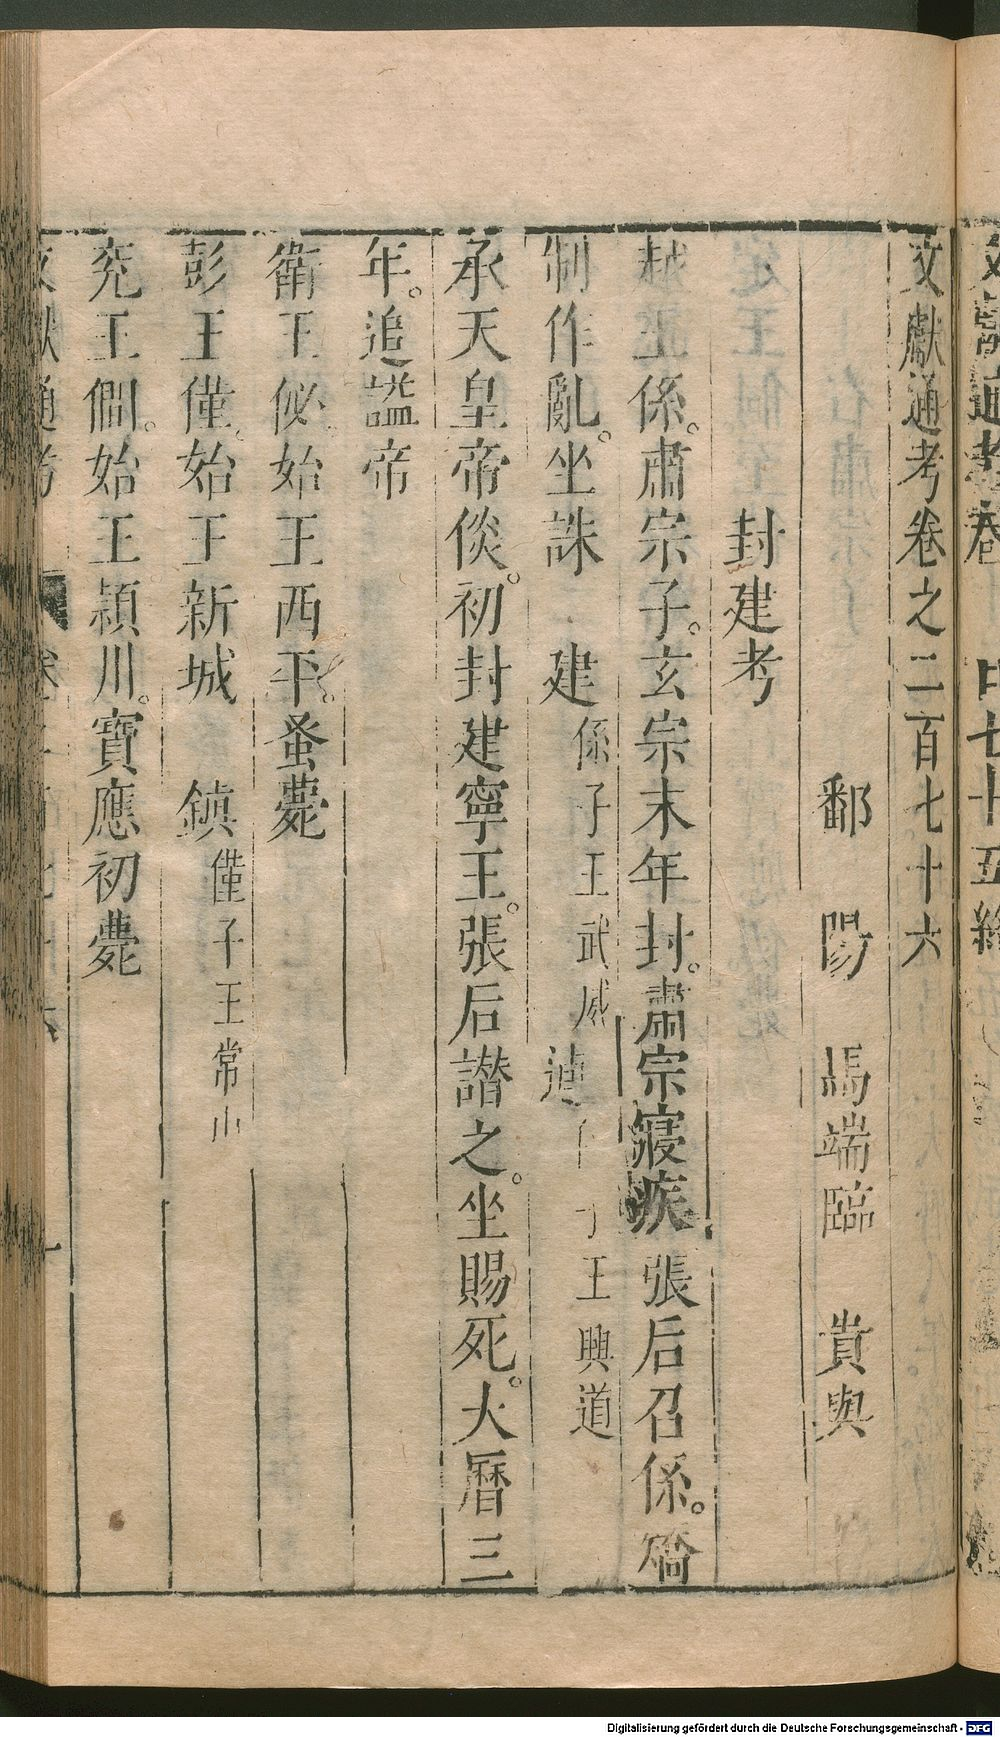 文獻通考卷之二百七十六
鄱陽 馬端臨 貴與
封建考
越王係。肅宗子。玄宗末年封。肅宗寢疾張后召係。矯
制作亂。坐誅 建係子王武威 逾 子王興道
承天皇帝倓。初封建寧王。張后譖之。坐賜死。大曆三
年。追謚帝
衛王佖始王西平。蚤薨
彭王僅。始王新城 鎮僅子王常山
兖王僴。始王頴川。寶應初薨
文獻通考
Digitalisierung gefördert durch die Deutsche Forschungsgemeinschaft - DFG